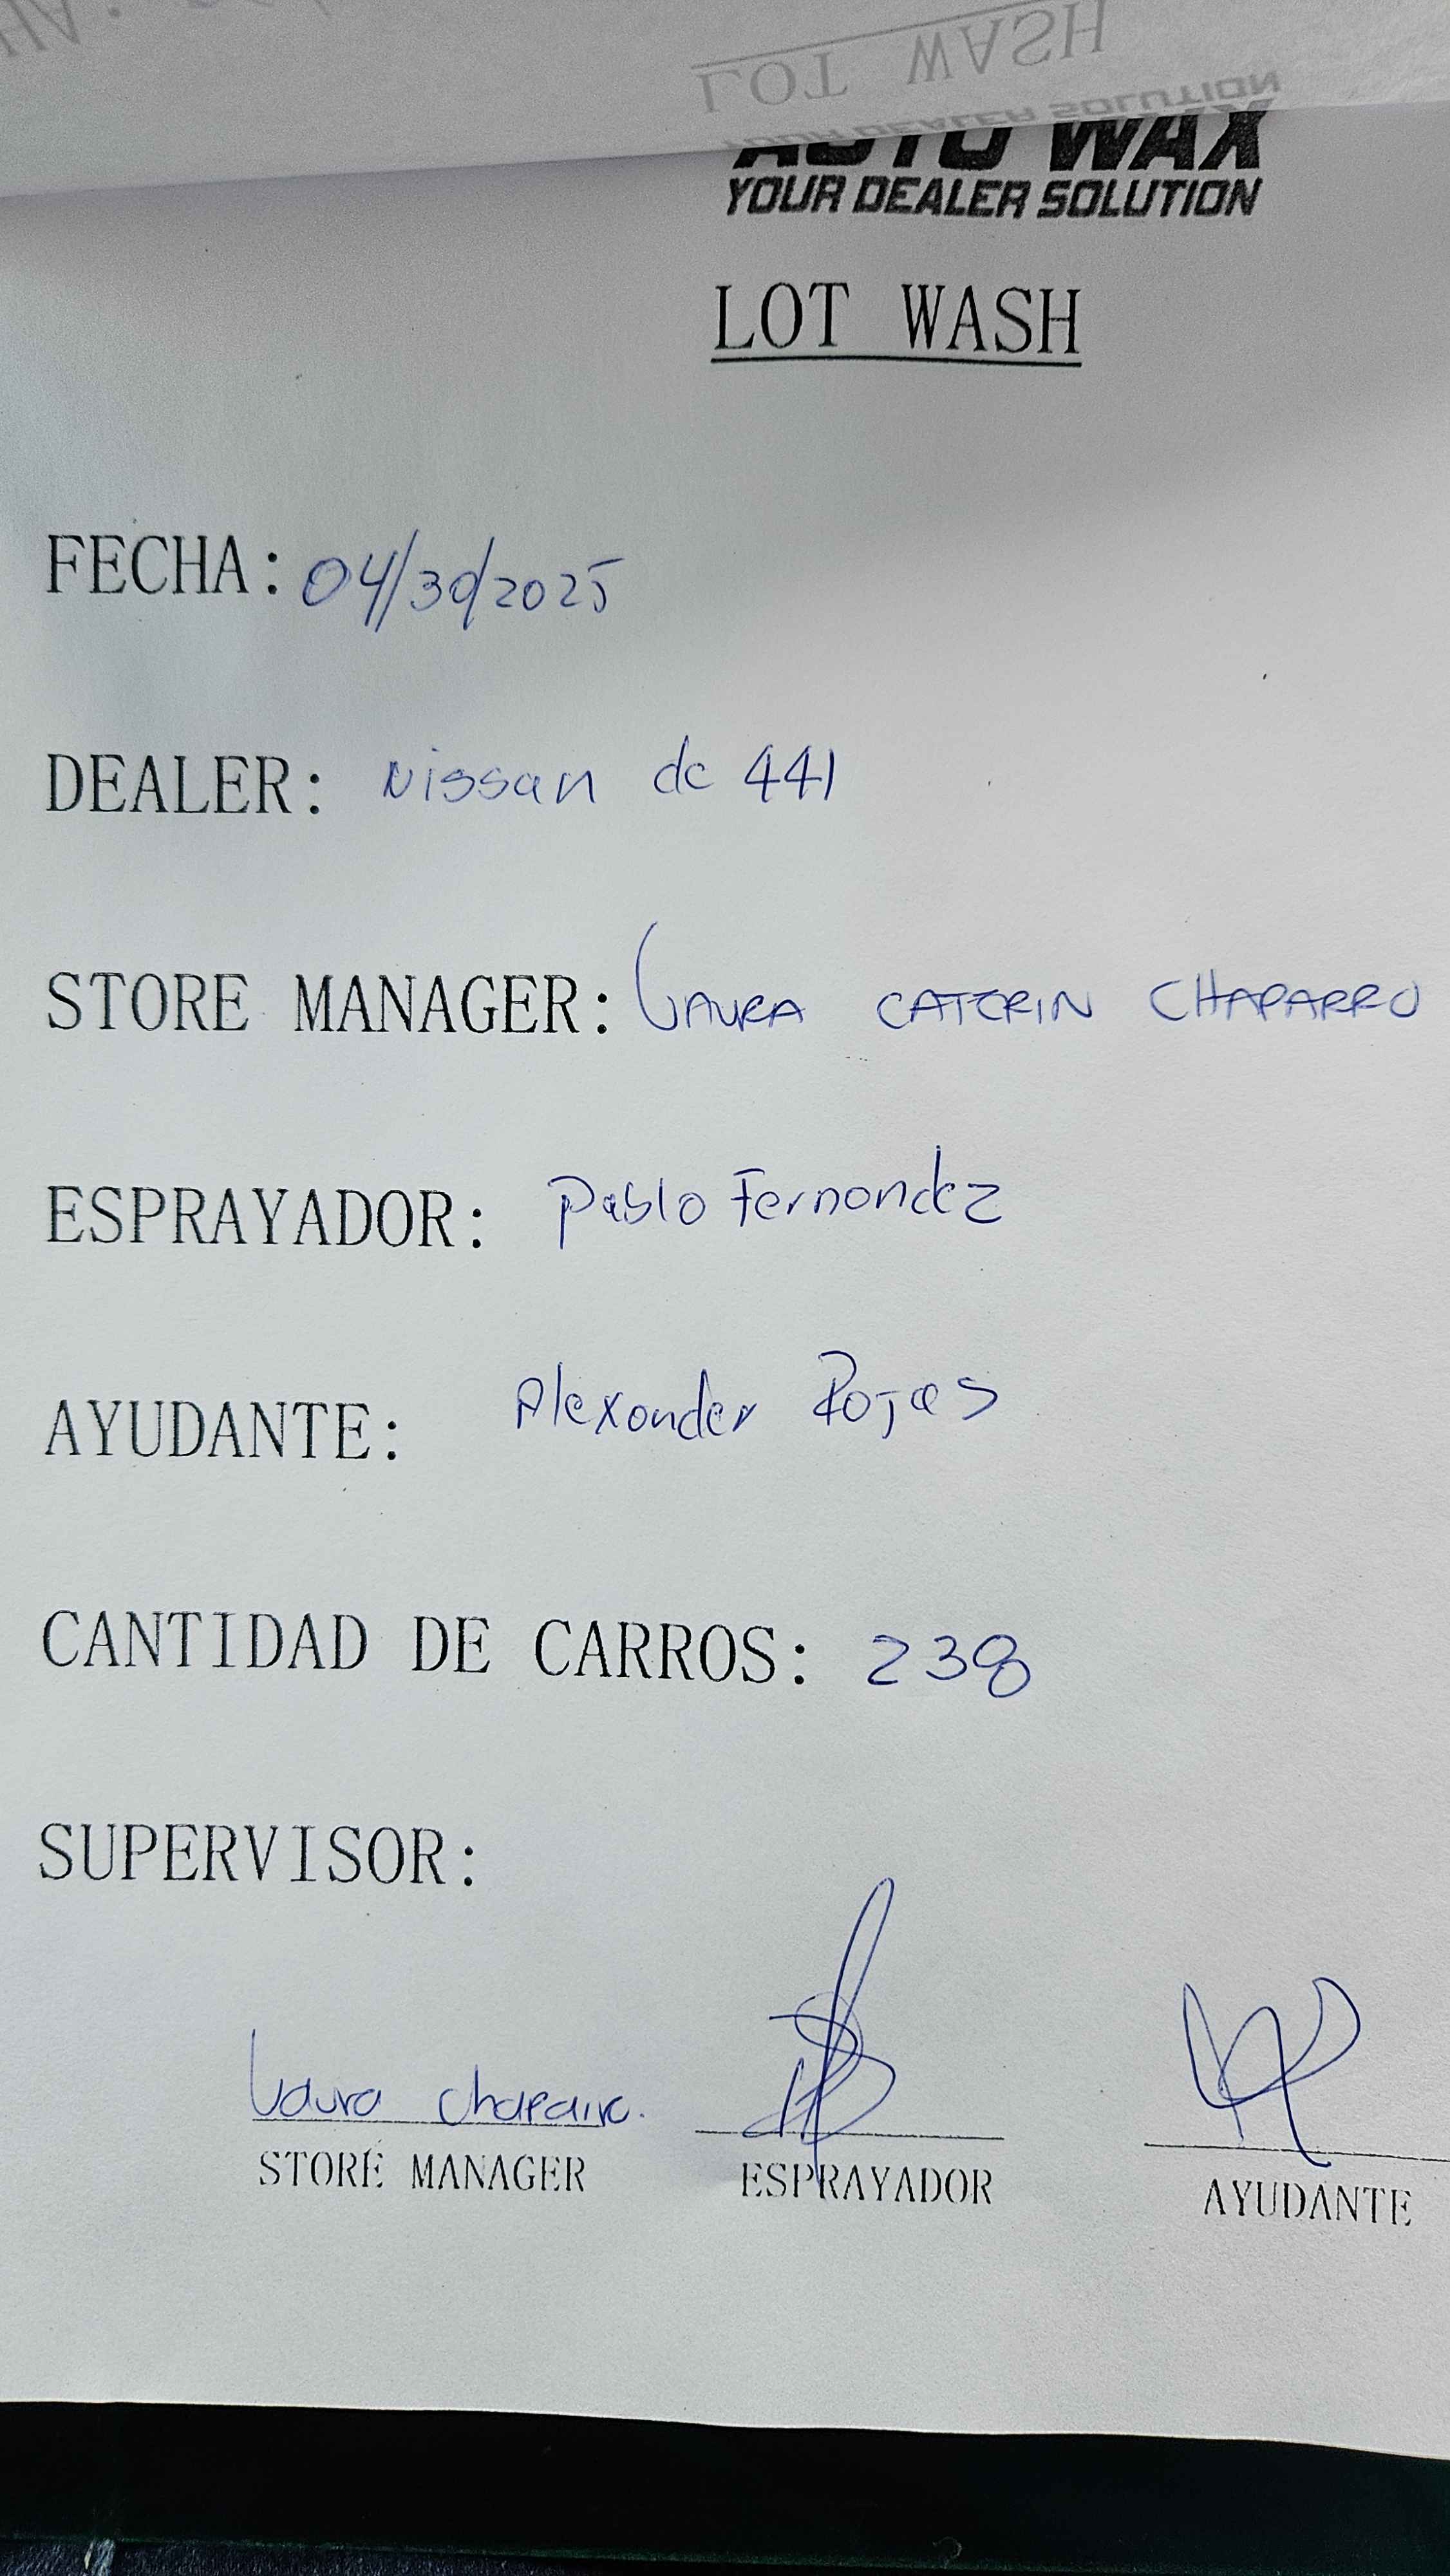 LOT WASH
YOUR DEALER SOLUTION
AUTO WAX
YOUR DEALER SOLUTION
LOT WASH
FECHA: 04/30/2025
DEALER: Nissan de 441
STORE MANAGER: LAURA CATERIN CHAPARRO
ESPRAYADOR: Pablo Fernandez
AYUDANTE: Alexander Rojas
CANTIDAD DE CARROS: 238
SUPERVISOR:
Laura Chaparro.
STORE MANAGER ESPRAYADOR AYUDANTE